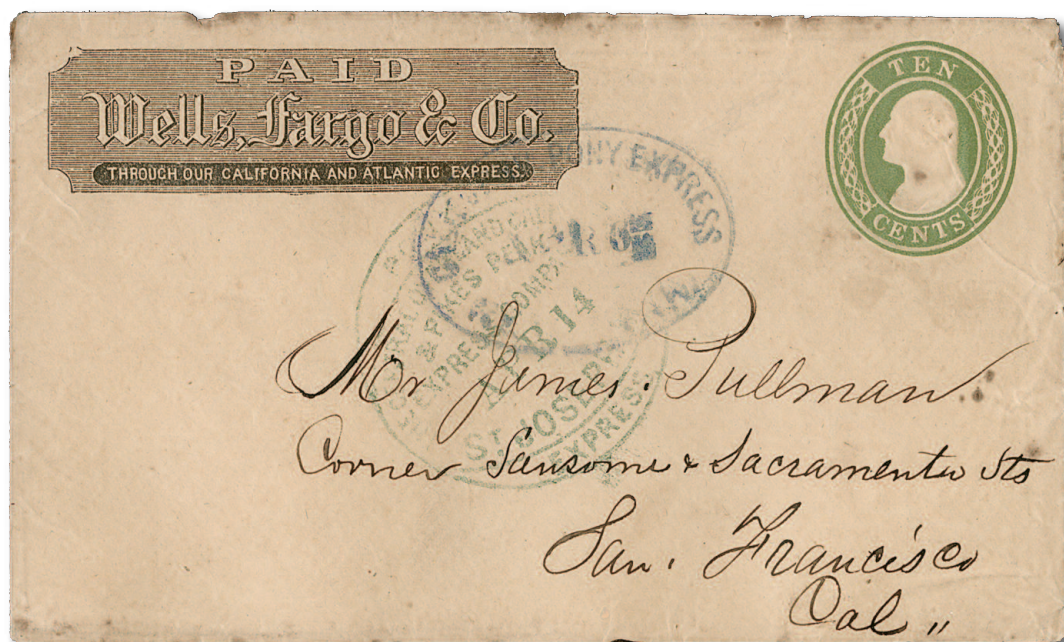 PAID
Wells, Fargo & Co.
THROUGH OUR CALIFORNIA AND ATLANTIC EXPRESS.
TEN
CENTS
PONY EXPRESS
& PIKES PEAK
EXPRESS COMPANY
14
ST. JOSEPH
EXPRESS
Mr James. Pullman.
Corner Sansome & Sacramento Sts
San. Francisco
Cal "